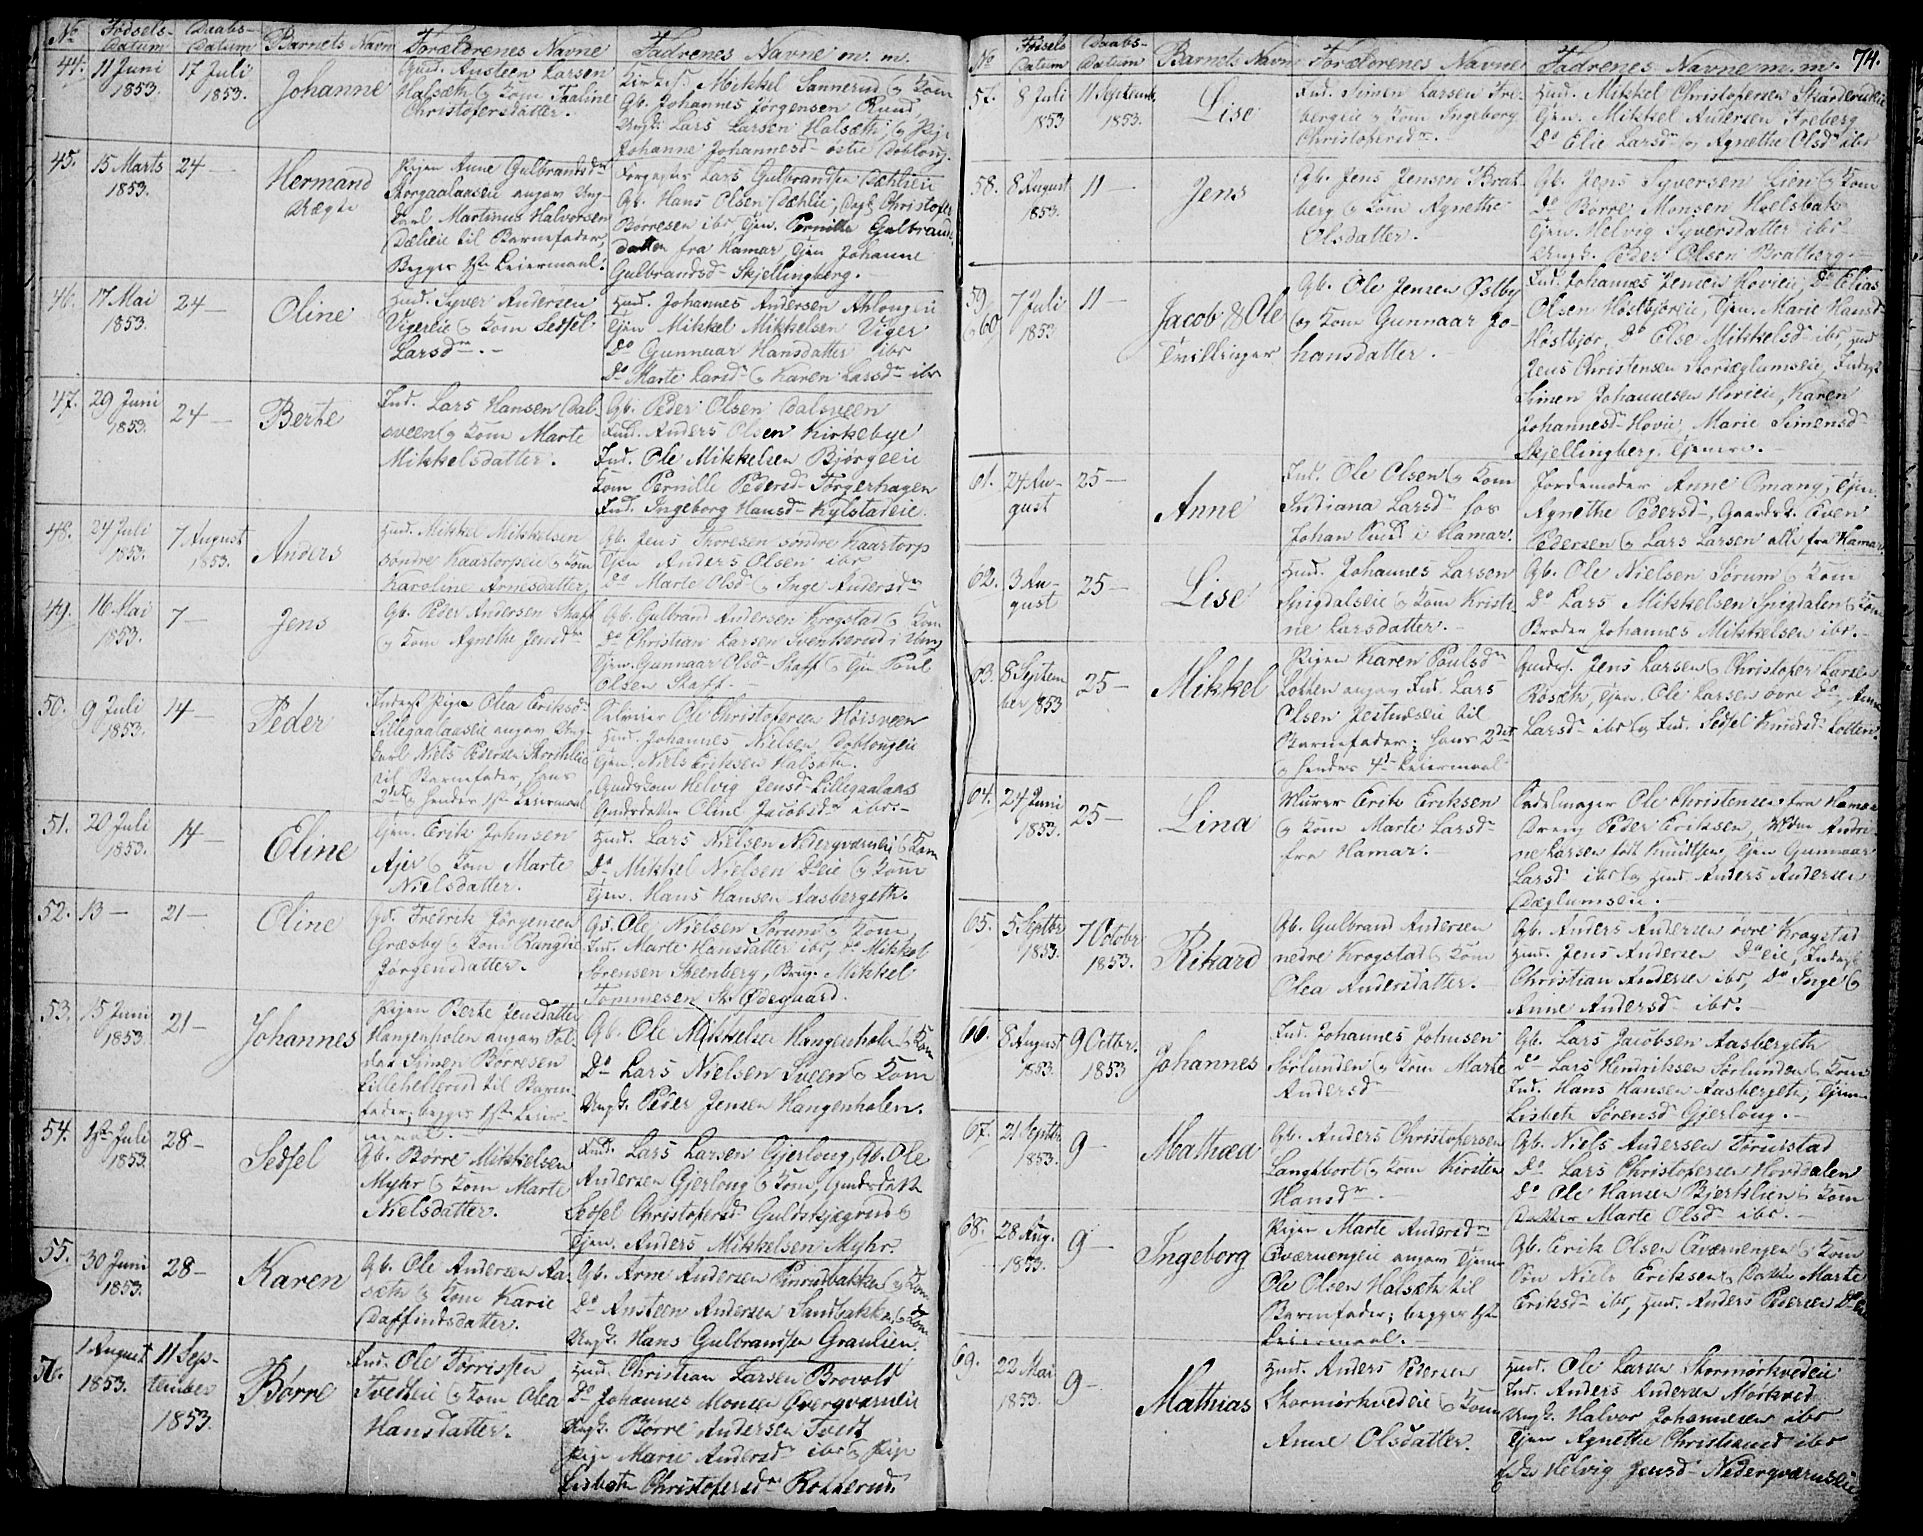 No Fødsels-Datum Daabs-Datum Barnets Navn Forældrenes Navne Fadrenes Navne m. m.
44. 11 Juni 1853. 17 Juli 1853. Johanne
Huusm. Austeen Larsen
Halsæth & Kone Thaline
Christophersdatter.
Mikkel Sannerud & Kone
Gb. Johannes Jørgensen Rund,
Ungk. Lars Larsen Halsæth, & Pige
Johanne Johannesd. østre Doblong.
45. 15 Marts 1853. 24 — Hermand
Pigen Anne Gulbrandsd.
angav Ung-
karl Martinus Halvorsen
Dælieie til Barnefader,
Begges 1ste Leiermaal.
Forgagter Lars Gulbrandsen Dæhlieie
Gb. Hans Olsen Dæhlie, Christofer
Børresen ibr, Tjen. Pernille Gulbrands-
datter fra Hamar, Tjen Johanne
Gulbrandsd. Skjellingberg. —
46. 17 Mai 1853. 24 — Oline
Huusm. Syver Andersen
Vigereie & Kone Sedsel
Larsd. —
Huusm. Johannes Andersen
Tjen Mikkel Mikkelsen Viger
Do Gunnaar Hansdatter ibr
Do Marte Larsd. & Karen Larsd. ibr
47. 29 Juni 1853. 24 — Berthe
Ind. Lars Hansen Dal-
sveen & Kone Marte
Mikkelsdatter.
Gb. Peder Olsen Dalsveen
Anders Olsen Kirkebye
Ind. Ole Mikkelsen Bjørgeeie
Kone Pernille Pedersd. Torgerhagen
Ind. Ingeborg Hansd. Kylstadeie.
48. 24 Juli 1853. 7 August 1853. Anders
Huusm. Mikkel Mikkelsen
søndre Kaartorpeie & Kone
Karoline Arnesdatter
Gb. Jens Thoresen søndre Kaartorp
Tjen Anders Olsen ibr
Do Marte Olsd. & Inge Andersd.
49. 16 Mai 1853. 7 — Jens
Gb. Peder Andersen Staff
& Kone Agnethe Jensd.
Gb. Gulbrand Andersen Krogstad & Kone
Do Christian Larsen Svenkerud i Vang
Tjen. Gunnaar Olsd. Staff & Tjen Poul
Olsen Staff. —
50. 9 Juli 1853. 14 — Peder
Pigen Olea Eriksd.
Lillegaalaaseie angav Ung-
karl Niels Pedersen
til Barnefader, hans
2det & hendes 1ste Leiermaal
Selveier Ole Christophersen Høisveen
Huusm. Johannes Nielsen Doblougeie
Tjen. Niels Eriksen Halsæth.
Gaardkone Helvig Jensd. Lillegaalaas
Gaarddatter Oline Jacobsd. ibr. —
51. 20 Juli 1853. 14 — Eline
Tjen. Erik Johnsen
Ajer & Kone Marte
Nielsdatter.
Huusm. Lars Nielsen Nederqværneie & Kone
Do Mikkel Nielsen Do eie & Kone
Tjen. Hans Hansen Aasbergeth.
52. 13 — 21 — Oline
Gb. Fredrik Jørgensen
Græsby & Kone Rangdie
Jørgensdatter.
Gb. Ole Nielsen Sorum & Kone,
Ind. Marte Hansdatter ibr, Do Mikkel
Sørensen Steenberg, Brug. Mikkel
Tommesen St. Ødegaard.
53. 15 Juni 1853. 21 — Johannes
Pigen Berte Jensdatter
Hangenholen angav Sol-
dat Symen Børresen
Lillehellerud til Barne-
fader; begges 1ste Leier-
maal. —
Gb. Ole Mikkelsen Hangenholen & Kone
Do Lars Nielsen Sveen & Kone
Ungk. Peder Jensen Hangenholen.
54. 1ste Juli 1853. 28 — Sedsel
Gb. Børre Mikkelsen
Myhr & Kone Marte
Nielsdatter.
Lars Larsen Gjerlong, Gb. Ole
Andersen Gjerlong & Kone, Gaardsdatter
Sedsel Christophersd. &
Tjen. Anders Mikkelsen Myhr.
55. 30 Juni 1853. 28 — Karen
Gb. Ole Andersen Aa-
sæth & Kone Karie
Daffindsdatter.
Gb. Arne Andersen Finrudbakken & Kone
Do Austeen Andersen Sandbakken & Kone
Ungk. Hans Gulbrandsen Graulien.
56. 1 August 1853. 11 September 1853. Børre
Ind. Ole Torrissen
Tvedteie & Kone Olea
Hansdatter.
Huusm. Christian Larsen Brovold
Do Johannes Monsen Overqværneie
Ungk. Børre Andersen Tvedt
Pige Marie Andersd. ibr & Pige
Lisbeth Christophersd. Rotherud.
74.
No Fødsels Datum Daabs-Datum Barnets Navn Forældrenes Navne Fadrenes Navne m. m.
57. 8 Juli 1853 11 Septemb. 1853. Lise
Ind. Simen Larsen Fre-
bergeie & Kone Ingeborg
Christophersd.
Huusm. Mikkel Christophersen
Tjen. Mikkel Andersen Freberg
Do Elie Larsd. & Agnethe Olsd. ibr
58. 8 August 1853. 11 — Jens
Gb. Jens Jensen Brat-
berg & Kone Agnethe
Olsdatter.
Gb. Jens Syversen Lien & Kone
Do Børre Monsen Hoelsbak
Tjen. Helvig Syversdatter ibr
Ungk. Peder Olsen Bratberg. —
59 & 60 7 Juli 1853 11 Jacob & Ole
Tvillinger
Gb. Ole Jensen Østby
& Kone Gunnaar Jo-
hansdatter. —
Ind. Johannes Jensen Hovieie, Do Elias
Olsen Høstbjøreie, Tjen. Marie Hansd.
Høstbjør, Do Else Mikkelsd. ibr, Huusm.
Jens Christensen Stordæglumseie,
Simen Johannesen Hovieie, Karen
Johannesd. Hovie, Marie Simensd.
Skjellingberg, Tjenere. —
61. 24 August 25 — Anne
Ind. Ole Olsen & Kone
Indiana Larsd. hos
Johan i Hamar.
Jordemoder Anne Omang, Tjen.
Agnethe Pedersd., Gaardsk. Even
Pedersen & Lars Larsen alle fra Hamar.
62. 3 August 25 — Lise
Huusm. Johannes Larsen
Snigdalseie & Kone Kristi-
ne Larsdatter. —
Gb. Ole Nielsen Sorum & Kone
Do Lars Mikkelsen Snigdalen & Kone
Broder Johannes Mikkelsen ibr. —
63. 8 September 1853 25 — Mikkel
Pigen Karen Poulsd.
Lotten angav Ind. Lars
Olsen til
Barnefader; hans 2det
& hendes 4de Leiermaal
Jens Larsen & Christopher Larsen
Røsæth, Tjen. Ole Larsen øvre Do, Anne
Larsd. ibr & Ind. Sedsel Knudsd. Lotten.
64. 24 Juni 1853. 25 — Lina
Murer Erik Eriksen
& Kone Marte Larsd.
fra Hamar. —
Sadelmager Ole Christensen fra Hamar
Dreng Peder Eriksen, Mdm Andri-
ne Larsen født Knudtsen, Tjen Gunnaar
Larsd. ibr & Huusm. Anders Andersen
Dæglumseie. —
65. 5 Septbr 1853. 7 Octobr 1853. Rikard
Gb. Gulbrand Andersen
nedre Krogstad & Kone
Olea Andersdatter. —
Gb. Anders Andersen øvre Krogstad
Huusm. Jens Andersen Do eie,
Christian Andersen ibr, Do Inge &
Anne Andersd. ibr. —
66. 8 August 1853. 9 Octbr. 1853 Johannes
Ind. Johannes Johnsen
Sørlunden & Kone Marte
Andersd.
Gb. Lars Jacobsen Aasbergeth
Do Lars Hendriksen Sørlunden & Kone
Ind. Hans Hansen Aasbergeth, Tjen.
Lisbeth Sørensd. Gjerlong. —
67. 21 Septbr 1853. 9 — Mathæa
Gb. Anders Christophersen
Langtbort & Kone Kirsten
Hansd. —
Gb. Niels Andersen Torudstad
Do Lars Christophersen Hovdalen
Do Ole Hansen Bjerkelien & Kone
Datter Marte Olsd. ibr. —
68. 28 Aug. 1853. 9 — Ingeborg
Pigen Marte Andersd.
Qværnengeie angav Tjen.
Ole Olsen Halsæth til
Barnefader; begges 1ste
Leiermaal. —
Gb. Erik Olsen Qværnengen & Kone
Søn Niels Eriksen & Datter Marte
Eriksd. ibr, Huusm. Anders Pedersen Do eie
69. 22 Mai 1853. 9 — Mathias
Huusm. Anders Pedersen
Stormørkvedeie & Kone
Anne Olsdatter.
Huusm. Ole Larsen Stormørkvedeie
Ind. Anders Andersen Mørkved
Ungk. Halvor Johannesen ibr
Tjen Agnethe Christiansd. ibr
& Do Helvig Jensd. Nederqværneie